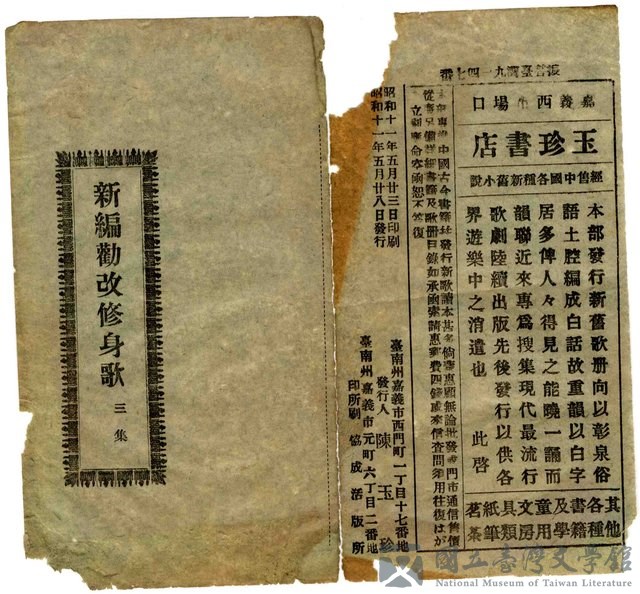 新編勸改修身歌 三集
振替臺灣九一四七番
嘉義西市場口
玉珍書店
經售中國各種新舊小說
本部發行新舊歌册向以彰泉俗
語土腔編成白話故重韻以白字
居多俾人々得見之能曉一誦而
韻聯近來專爲搜集現代最流行
歌劇陸續出版先後發行以供各
界遊樂中之消遣也 此啓
其他各種書籍及學童用文房具類紙筆茗茶
中國古今書籍並發行新歌讀本甚多倘蒙惠顧無論批發門市通信售價
從廉另備詳細書籍及歌册目錄如承函索請惠郵費四錢或來信查問須用往復はがき
立刻奉命空函恕不答復
昭和十一年五月廿三日印刷
昭和十一年五月廿八日發行
臺南州嘉義市西門町一丁目十七番地
發行人 陳玉珍
臺南州嘉義市元町六丁目二番地
印刷所 協成活版所
國立臺灣文學館
National Museum of Taiwan Literature